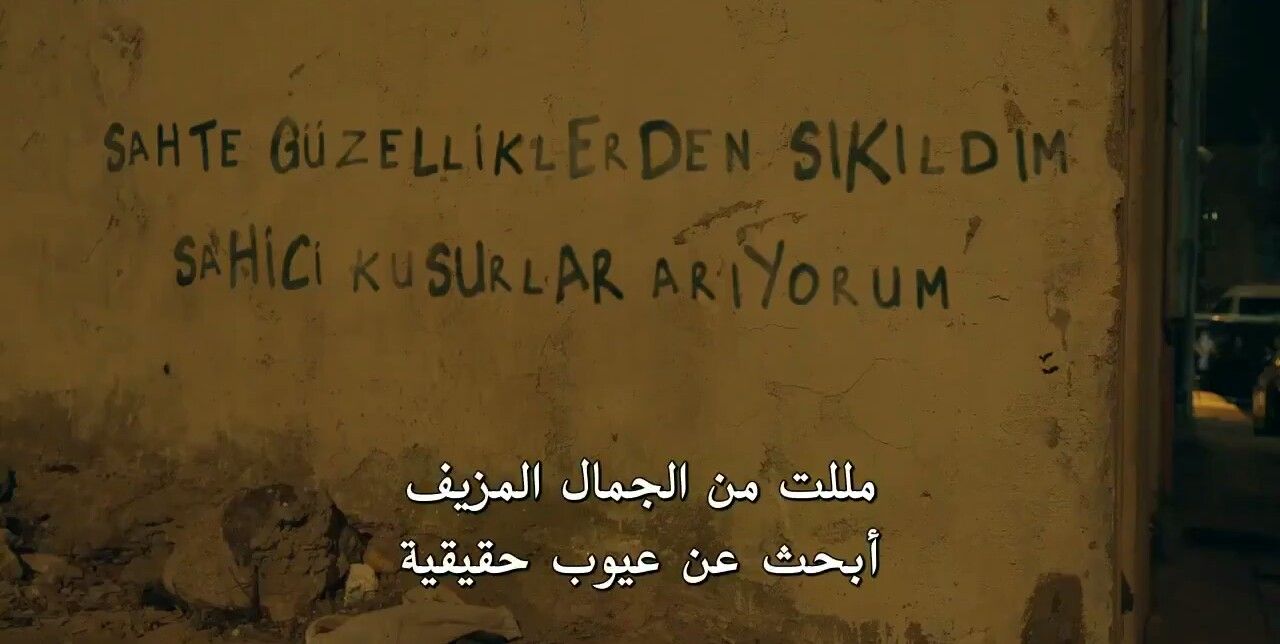 SAHTE GÜZELLİKLERDEN SIKILDIM
SAHİCİ KUSURLAR ARIYORUM
مللت من الجمال المزيف
أبحث عن عيوب حقيقية